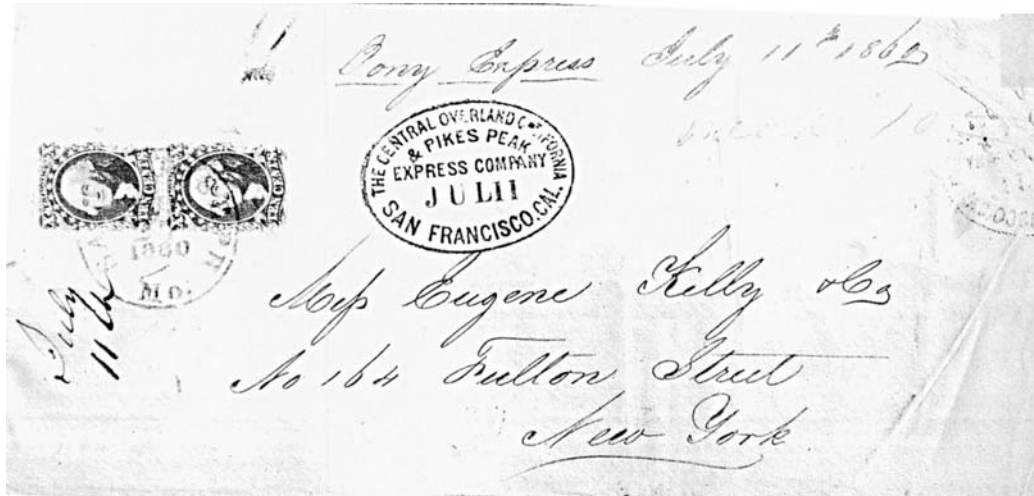 Pony Express July 11th 1860
THE CENTRAL OVERLAND CALIFORNIA
& PIKES PEAK
EXPRESS COMPANY
JUL 11
SAN FRANCISCO, CAL.
1860
Mo.
July
11th
Mess Eugene Kelly & Co
No 164 Fulton Street
New York